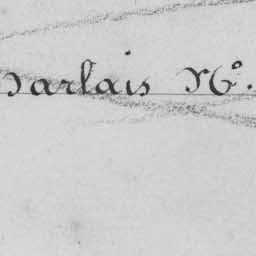 Darlais Nº.